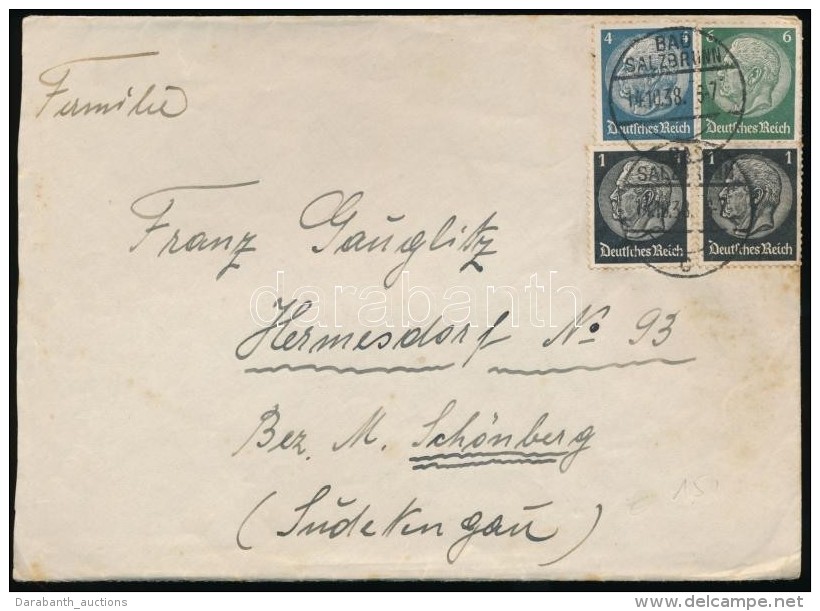 4 6 6
BAD
SALZBRUNN
14.10.38. 6-7
Deutsches Reich Deutsches Reich
1 1 1
Deutsches Reich Deutsches Reich
c
Familie
Franz Gaŭglitz
darabanth
Hermesdorf No 93
Bez. M. Schönberg
(Sŭdetengaŭ)
Darabanth_auctions
delcampe.net